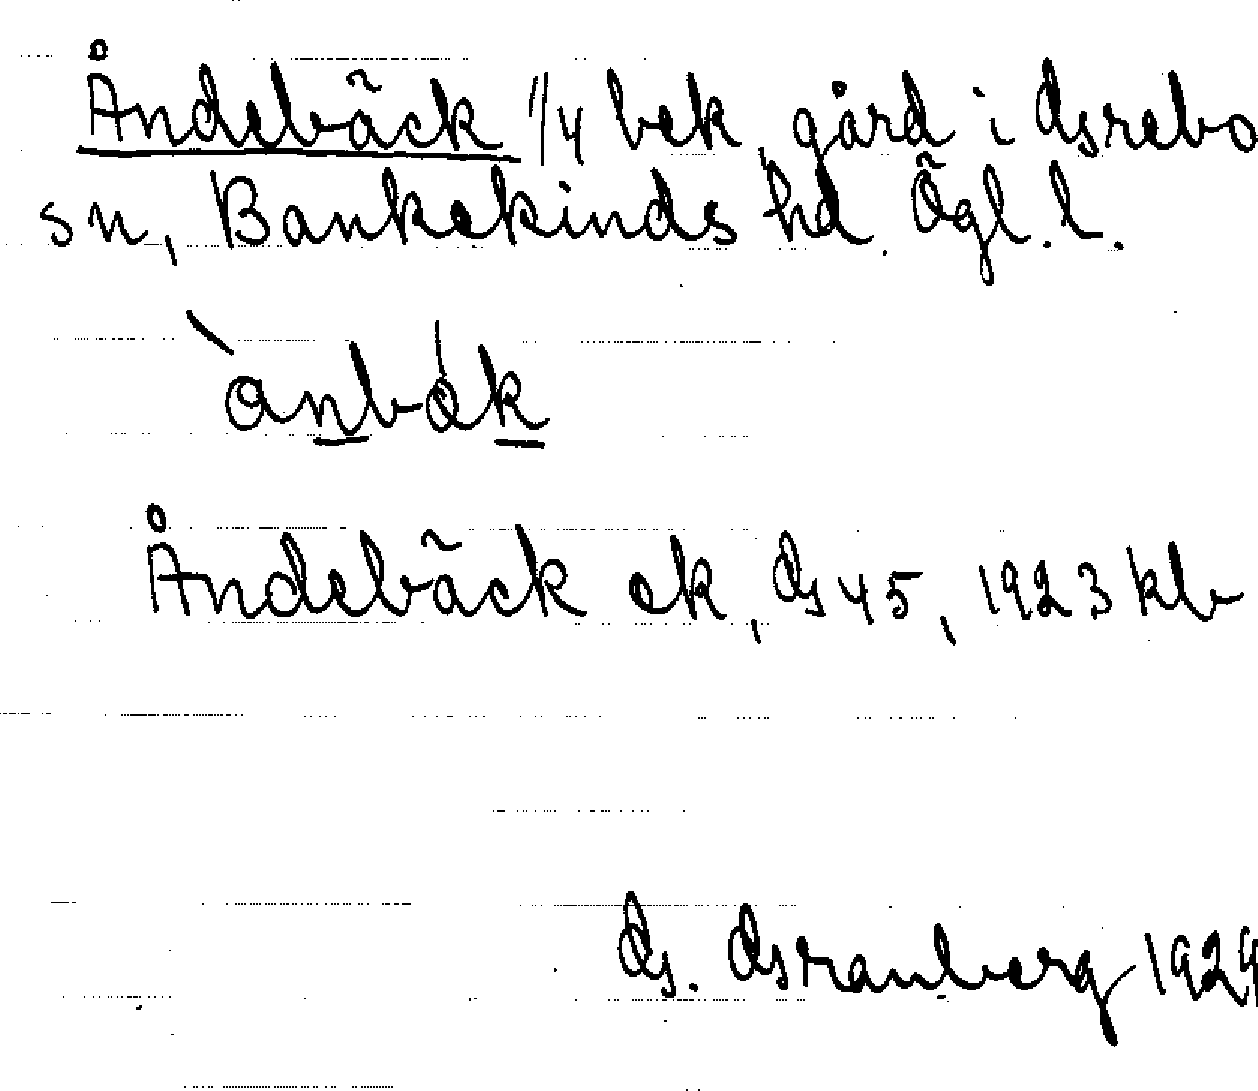 Åndebäck 1/4 bek. gård i Grebo
sn, Bankekinds hd. Ögl. l.
ànbák
Åndebäck ek, G 45, 1923 klb
G. Granberg 1929